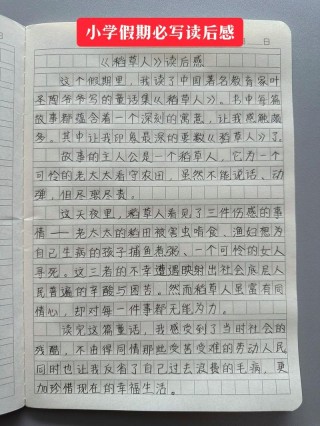 小学假期必写读后感
日
《稻草人》读后感
这个假期里，我读了中国著名教育家叶
圣陶爷爷写的童话集《稻草人》。书中每篇
故事都蕴含着一个深刻的寓意，让我感触颇
多。其中让我印象最深的要数《稻草人》了。
故事的主人公是一个稻草人，它为一个
可怜的老太太看守农田，虽然不能说话、动
弹，但尽职尽责。
这天夜里，稻草人看见了三件伤感的事
情——老太太的稻田被害虫啃食、渔妇把为
自己生病的孩子捕鱼煮粥、一个可怜的女人
寻死。这三者的不幸遭遇映射出社会底层人
民普遍的辛酸与困苦。然而稻草人虽富有同
情心，却对每一件事都无能为力。
读完这篇童话，我感受到了当时社会的
残酷，不由得同情那些受苦受难的劳动人民，
同时也让我反省了自己过去浪费的毛病，更
加珍惜现在的幸福生活。